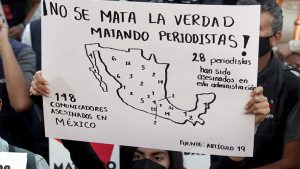 ¡NO SE MATA LA VERDAD
MATANDO PERIODISTAS!
28 periodistas
han sido
asesinados en
esta administración
148
COMUNICADORES
ASESINADOS EN
MÉXICO
FUENTE: ARTÍCULO 19